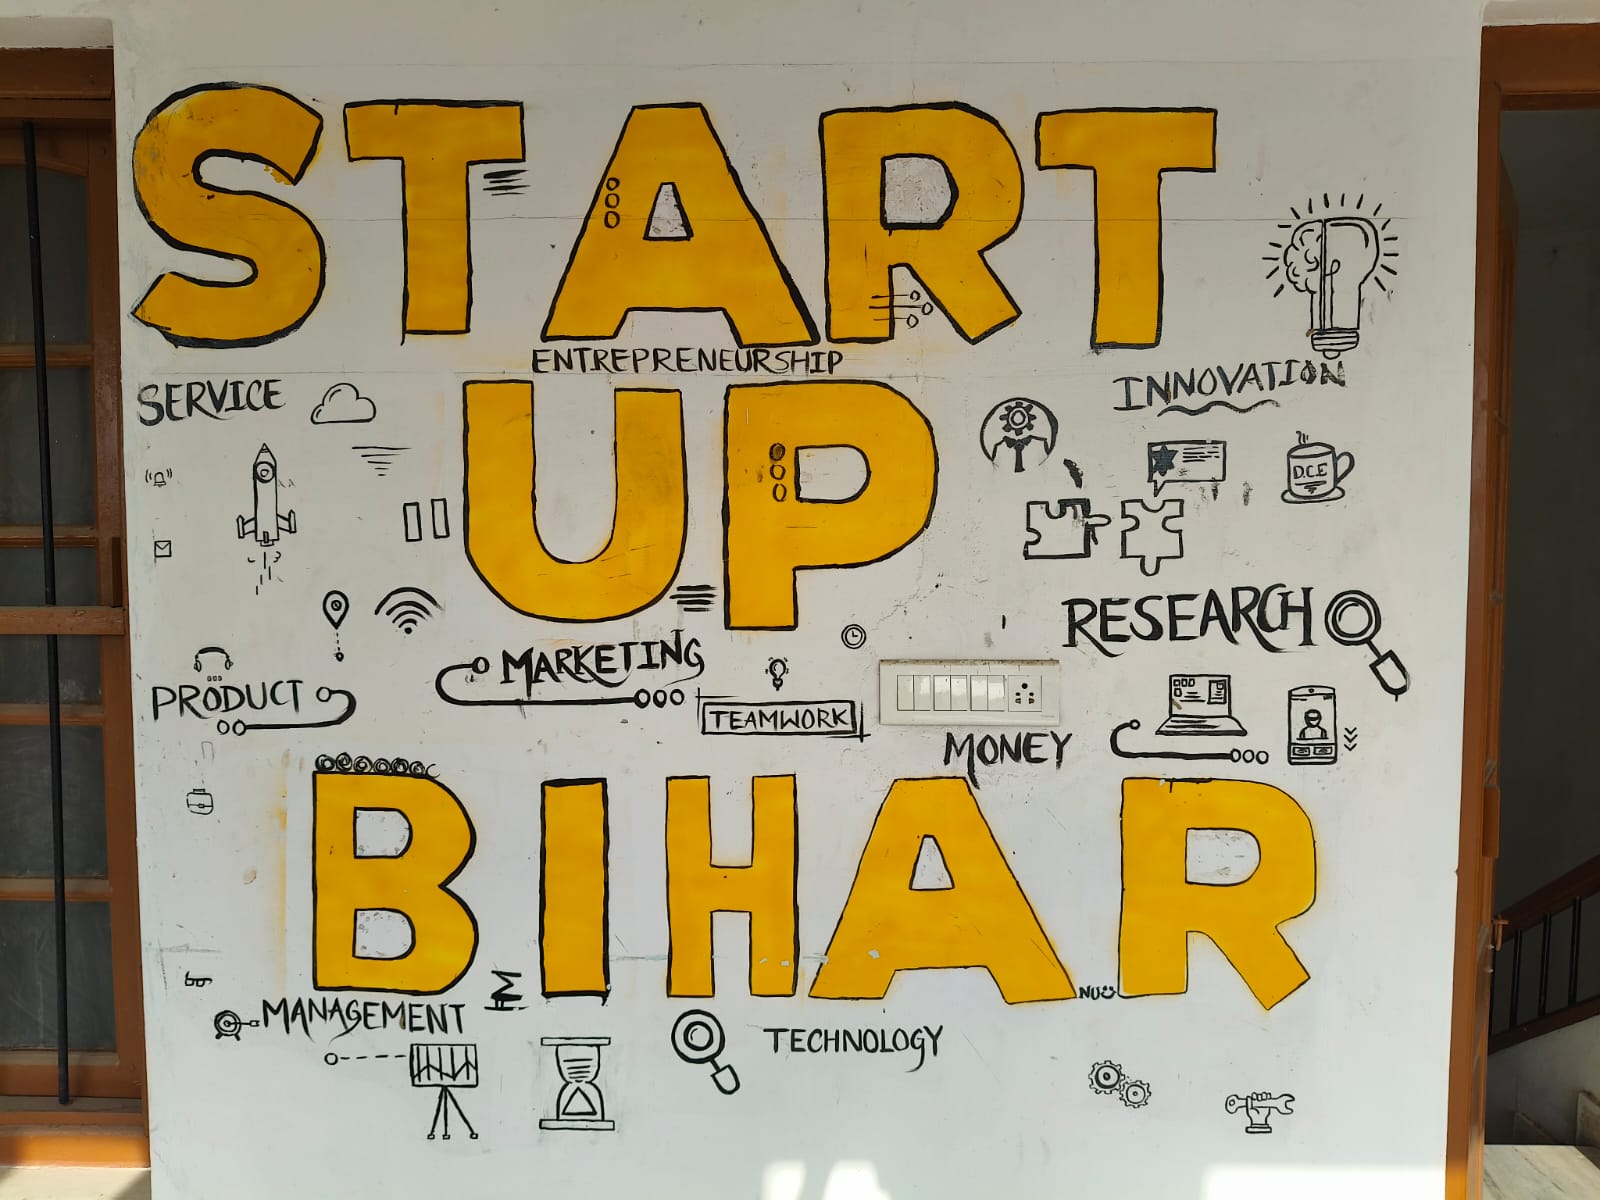 START
ENTREPRENEURSHIP
SERVICE
INNOVATION
UP
D.C.E
RESEARCH
MARKETING
PRODUCT
TEAMWORK
MONEY
BIHAR
MANAGEMENT
TECHNOLOGY